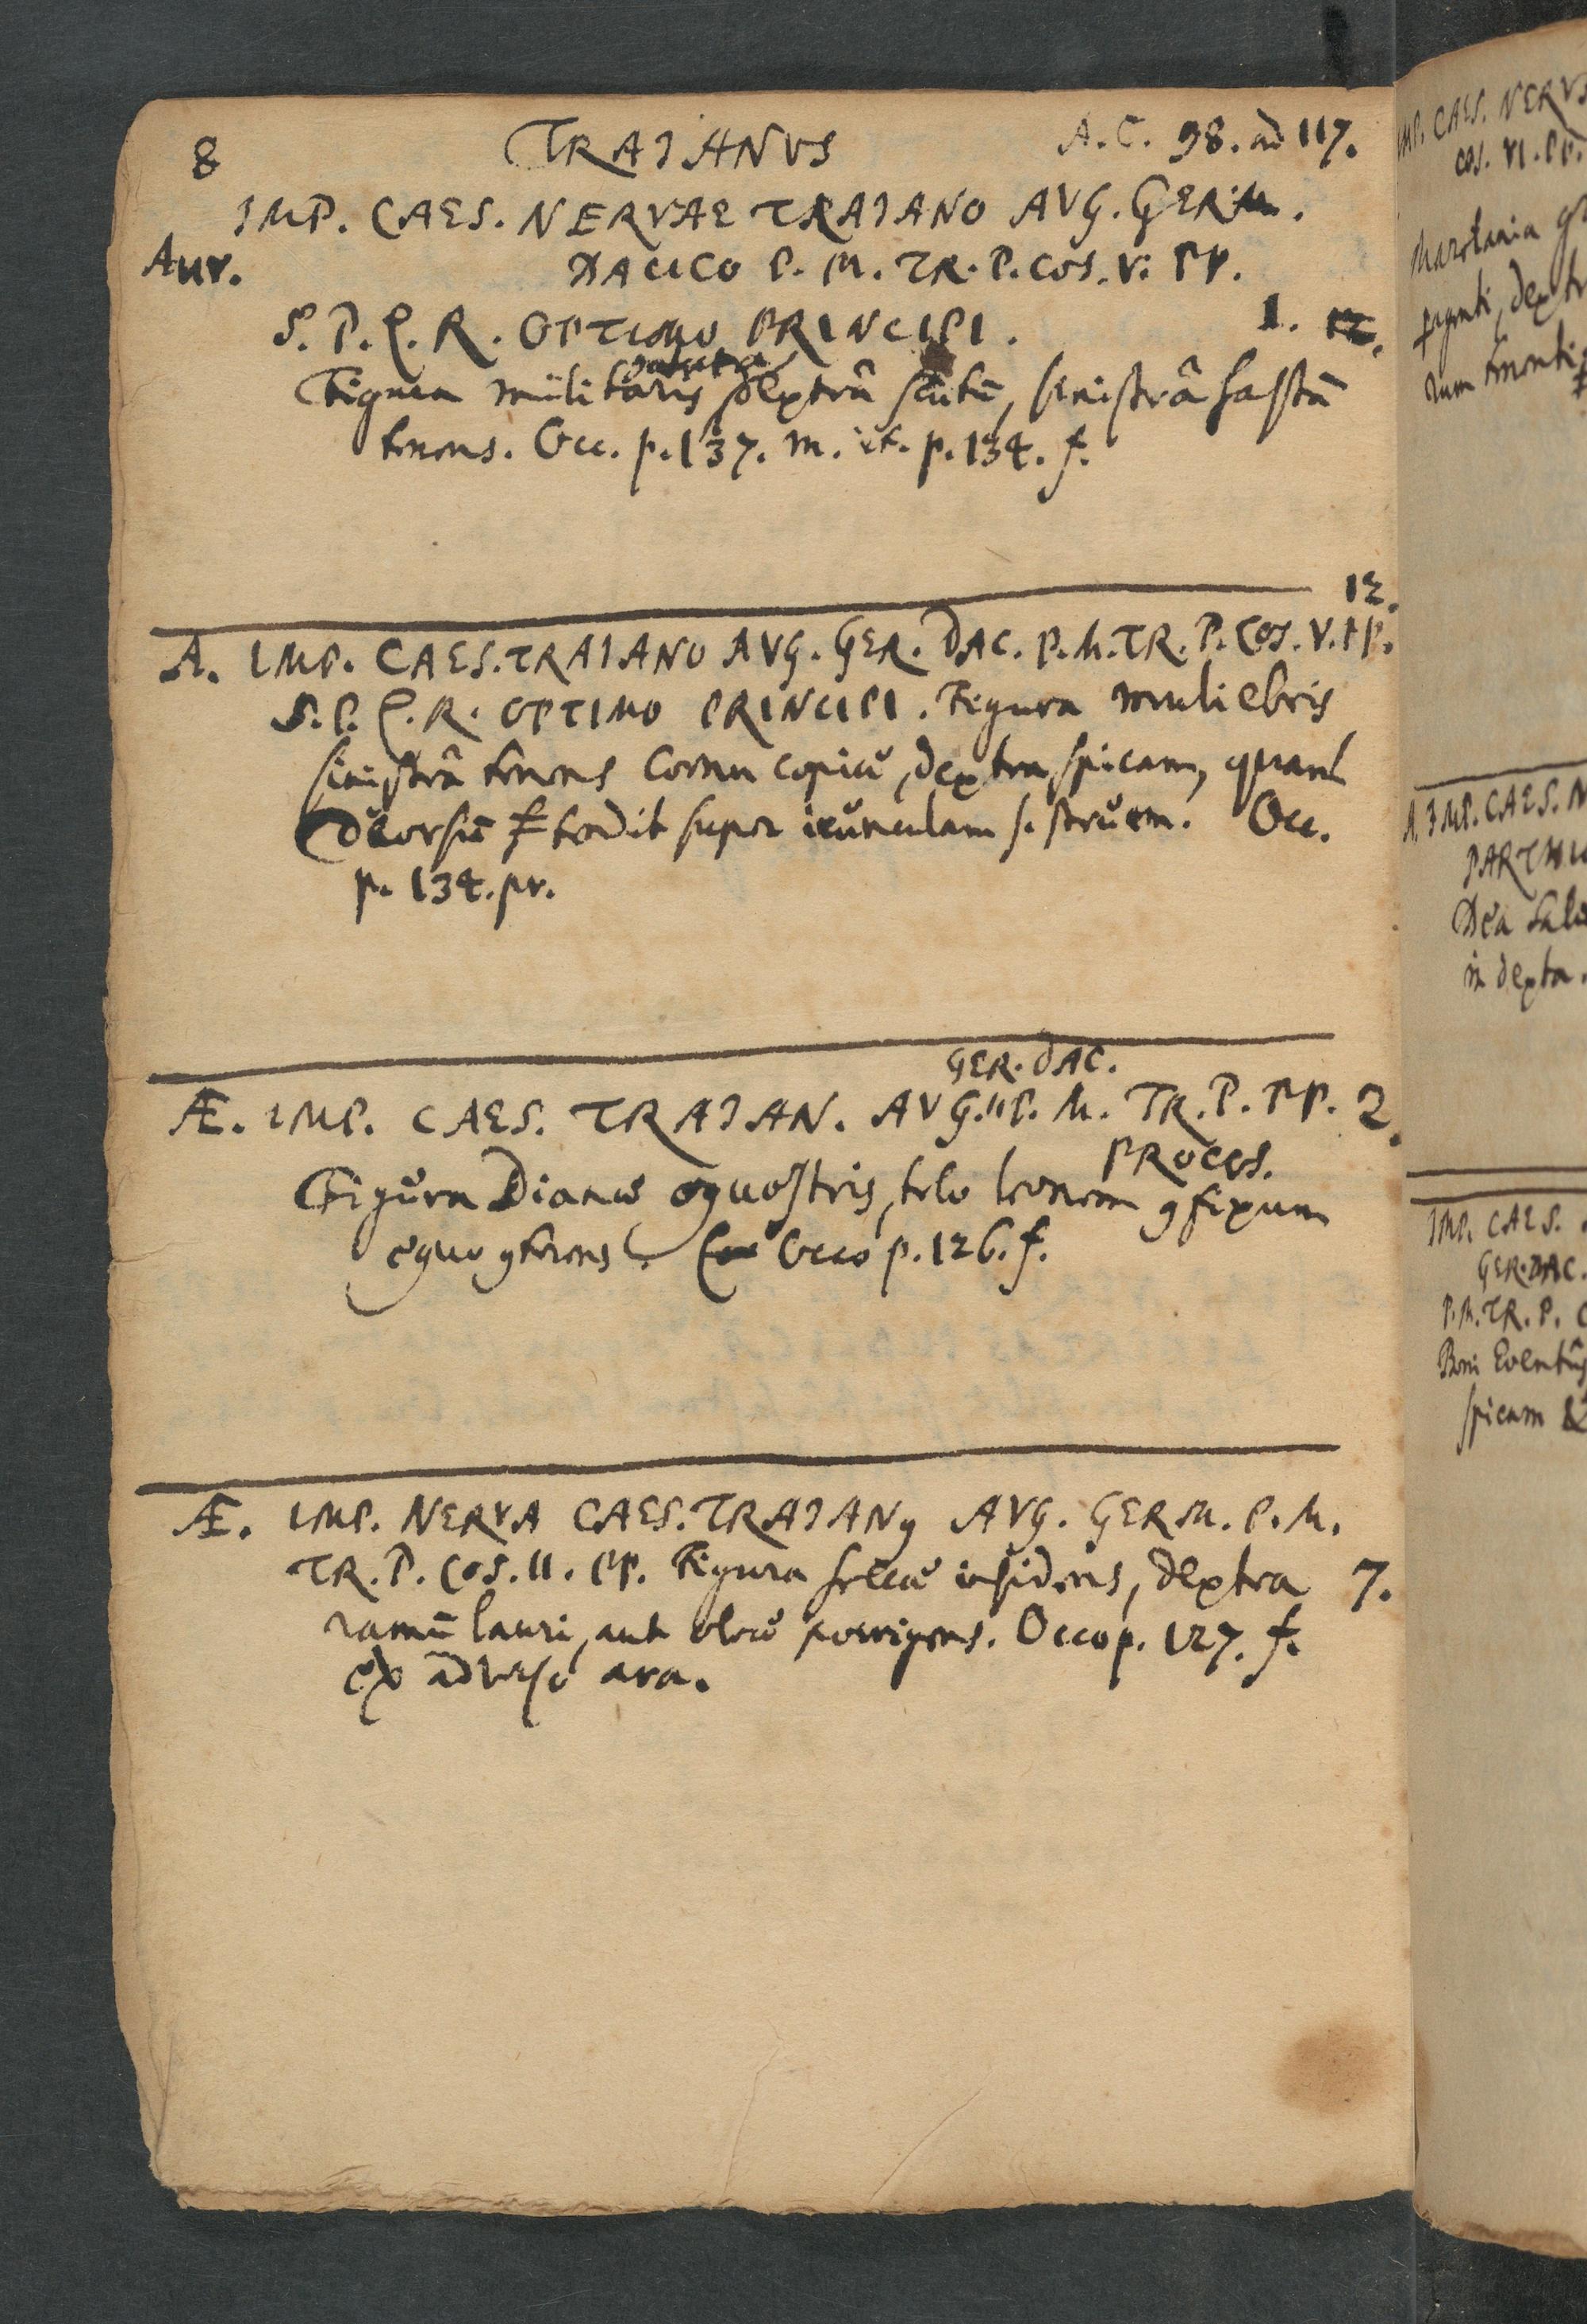 8 TRAJANVS A.C. 98. ad 117.
IMP. CAES. NERVAE TRAIANO AVG. GERM.
Aur. DACICO P. M. TR. P. COS. V. PP.
S. P. Q. R. OPTIMO PRINCIPI. 1.
Figura militaris dextrâ scutū, sinistrâ hastā
tenens. Occ. p. 137. m. it. p. 134. f.
12.
A. IMP. CAES. TRAIANO AVG. GER. DAC. P. M. TR. P. COS. V. PP.
S. P. Q. R. OPTIMO PRINCIPI. Figura muliebris
sinistrâ tenens cornu copiæ, dextra spicam, quam
deorsū tendit super icunculam s. struem. Occ.
p. 134. pr.
GER. DAC.
Æ. IMP. CAES. TRAJAN. AVG. " P. M. TR. P. PP. 2.
PROCOS.
Figura Dianæ equestris, telo leonem 9fixum
equo 9terens. Occo p. 126. f.
Æ. IMP. NERVA CAES. TRAJAN9 AVG. GERM. P. M.
TR. P. COS. II. PP. Figura sellæ insidens, dextra 7.
ramū lauri, aut oleæ porrigens. Occo p. 127. f.
ex adverso ara.
IMP. CAES. NERVA
COS. VI. PP.
A. IMP. CAES. N
PARTHIC
Dea Salu
in dextra.
IMP. CAES.
GER. DAC.
P. M. TR. P. C
Boni Eventûs
spicam